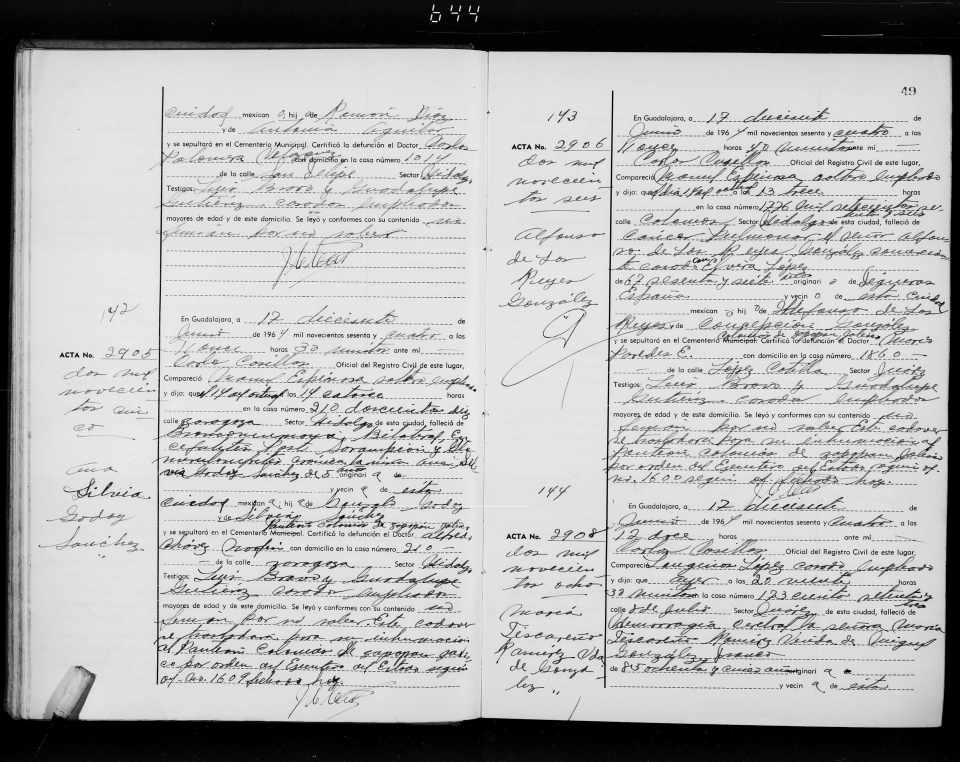 644
ciudad mexican a hij a de Ramón Díaz
y de Antonia Aguilar
y se sepultará en el Cementerio Municipal. Certificó la defunción el Doctor Carlos
Palomera con domicilio en la casa número 1014
de la calle San Felipe Sector Hidalgo
Testigos: Luis Bravo y Guadalupe
Gutiérrez casados Empleados
mayores de edad y de este domicilio. Se leyó y conformes con su contenido no
firmarán por no saber
142
ACTA No. 2905
dos mil
novecien
tos cin
co
Ana
Silvia
Godoy
Sánchez
En Guadalajara, a 17 diecisiete de
Junio de 1964 mil novecientos sesenta y cuatro a las
11 once horas 30 minutos ante mi
Carlos Casillas Oficial del Registro Civil de este lugar,
Compareció Manuel Espinosa soltero Empleado
y dijo: que el 14 del actual a las 14 catorce horas
en la casa número 210 doscientos diez
calle Zaragoza Sector Hidalgo de esta ciudad, falleció de
Bronconeumonía Bilateral, En
cefalitis post Sarampión
la niña Ana Sil
via Godoy Sánchez de 5 años originari a de
y vecin a de esta
ciudad mexican a hij a de Godoy
y de Silvina Sánchez
Panteón Colonias de Zapopan Jalisco
y se sepultará en el Cementerio Municipal. Certificó la defunción el Doctor Alfredo
Chávez con domicilio en la casa número 210
de la calle Zaragoza Sector Hidalgo
Testigos: Luis Bravo y Guadalupe
Gutiérrez casados Empleados
mayores de edad y de este domicilio. Se leyó y conformes con su contenido no
firman por no saber Este cadaver
se trasladara para su inhumacion
al Panteón Colonias de Zapopan Jalis
co por orden del Ejecutivo del Estado según
of. No. 1609 hoy.
49
143
ACTA No. 2906
dos mil
novecien
tos seis
Alfonso
de Los
Reyes
González
En Guadalajara, a 17 diecisiete de
Junio de 1964 mil novecientos sesenta y cuatro a las
11 once horas 40 minutos ante mi
Carlos Casillas Oficial del Registro Civil de este lugar,
Compareció Manuel Espinosa soltero Empleado
y dijo: que el dia 14 del actual a las 13 trece horas
en la casa número 1776 mil setecientos se-
tenta y seis
calle Colonias Sector Hidalgo de esta ciudad, falleció de
Cancer Pulmonar el señor Alfon
so de Los Reyes González
casado con Elvira López
de 67 sesenta y siete años originari o de Figueras
España y vecin o de esta Ciudad
mexican o hij o de Ildefonso de Los
Reyes y Concepcion González
Colonias de Zapopan Jalisco
y se sepultará en el Cementerio Municipal. Certificó la defunción el Doctor Marco
Paredes E. con domicilio en la casa número 1860
de la calle López Cotilla Sector Juárez
Testigos: Luis Bravo y Guadalupe
Gutiérrez casados Empleados
mayores de edad y de este domicilio. Se leyó y conformes con su contenido no
firman por no saber Este cadaver
se trasladara para su inhumacion al
Panteon Colonias de Zapopan Jalisco
por orden del Ejecutivo del Estado según of.
no. 1600 hoy.
144
ACTA No. 2908
dos mil
novecien
tos ocho
María
Tiscareño
Ramírez Vda
de Gonzá
lez
En Guadalajara, a 17 diecisiete de
Junio de 1964 mil novecientos sesenta y cuatro a las
12 doce horas ante mi
Carlos Casillas Oficial del Registro Civil de este lugar,
Compareció Longinos López casado Empleado
y dijo: que ayer a las 20 veinte horas
30 minutos en la casa número 173 ciento setenta y
tres
calle 5 de Julio Sector Juárez de esta ciudad, falleció de
Hemorragia cerebral la señora María
Tiscareño Ramírez Viuda de Miguel
González
de 85 ochenta y cinco años originari a de
y vecin a de esta